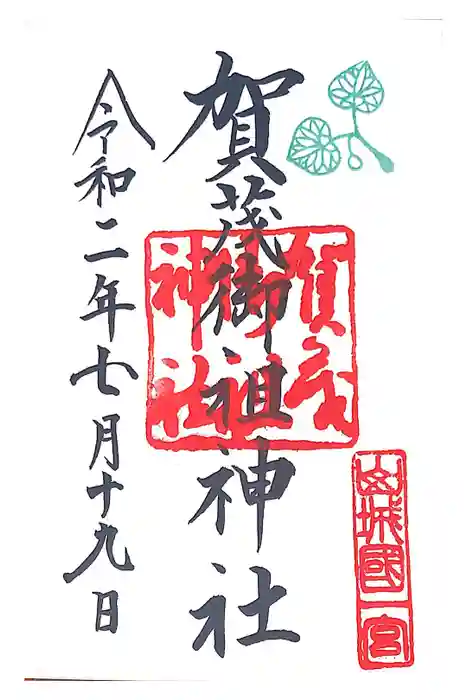 賀茂御祖神社
賀茂御祖神社
山城國一宮
令和二年七月十九日